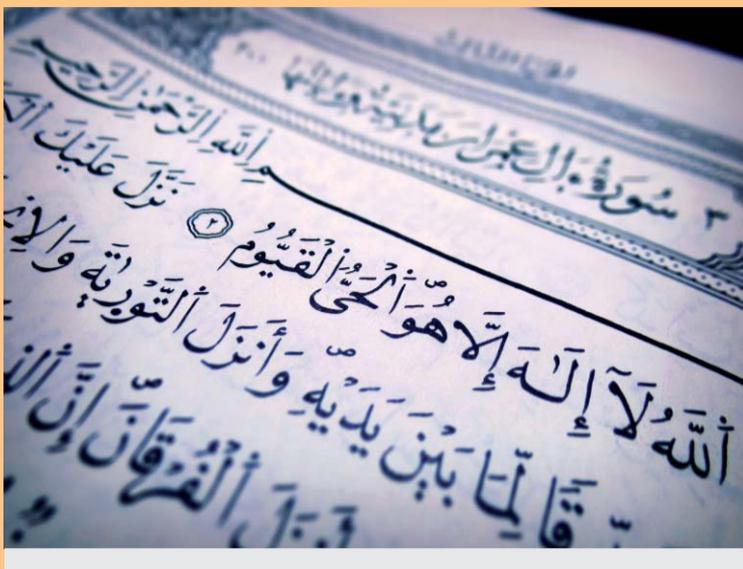 ٣ سُورَةُ آلِ عِمْرَانَ مَدَنِيَّة وَآيَاتُهَا ٢٠٠
بِسْمِ ٱللَّهِ ٱلرَّحْمَٰنِ ٱلرَّحِيمِ
ٱللَّهُ لَآ إِلَٰهَ إِلَّا هُوَ ٱلْحَىُّ ٱلْقَيُّومُ ٢ نَزَّلَ عَلَيْكَ
لِّمَا بَيْنَ يَدَيْهِ وَأَنزَلَ ٱلتَّوْرَىٰةَ
ٱلْفُرْقَانَ إِنَّ